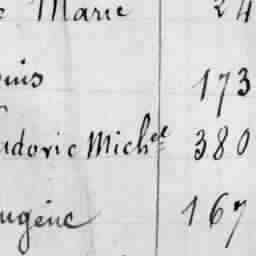 Marie 24
uis 173
udovic Mich^el 380
ugène 167